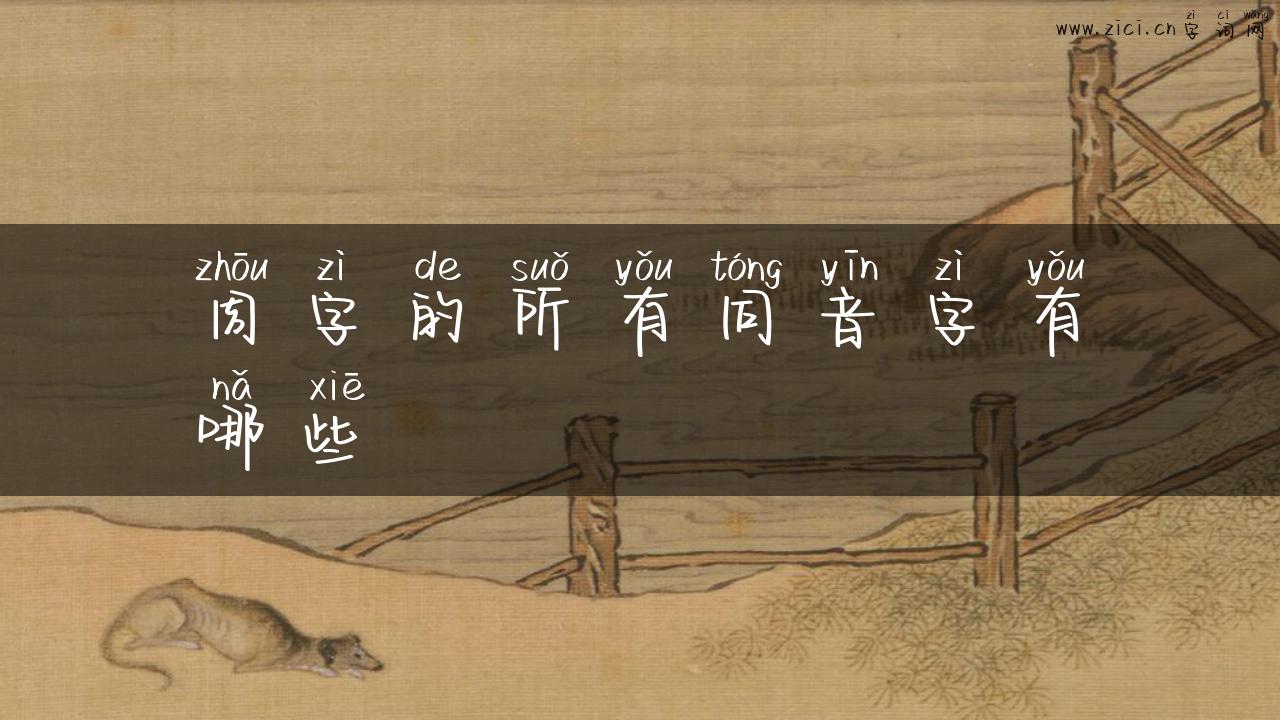 zì cì wang
www.zici.cn 字 词 网
zhōu zì de suǒ yǒu tóng yīn zì yǒu
周 字 的 所 有 同 音 字 有
nǎ xiē
哪 些